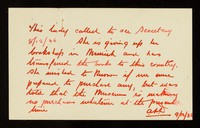 This lady called to see Secretary
8/2/66 She is giving up her
bookshop in Munich and has
transferred the books to this country.
She wished to know if we were
prepared to purchase any, but was
told that the Museum is making
no purchases whatever at the present
time